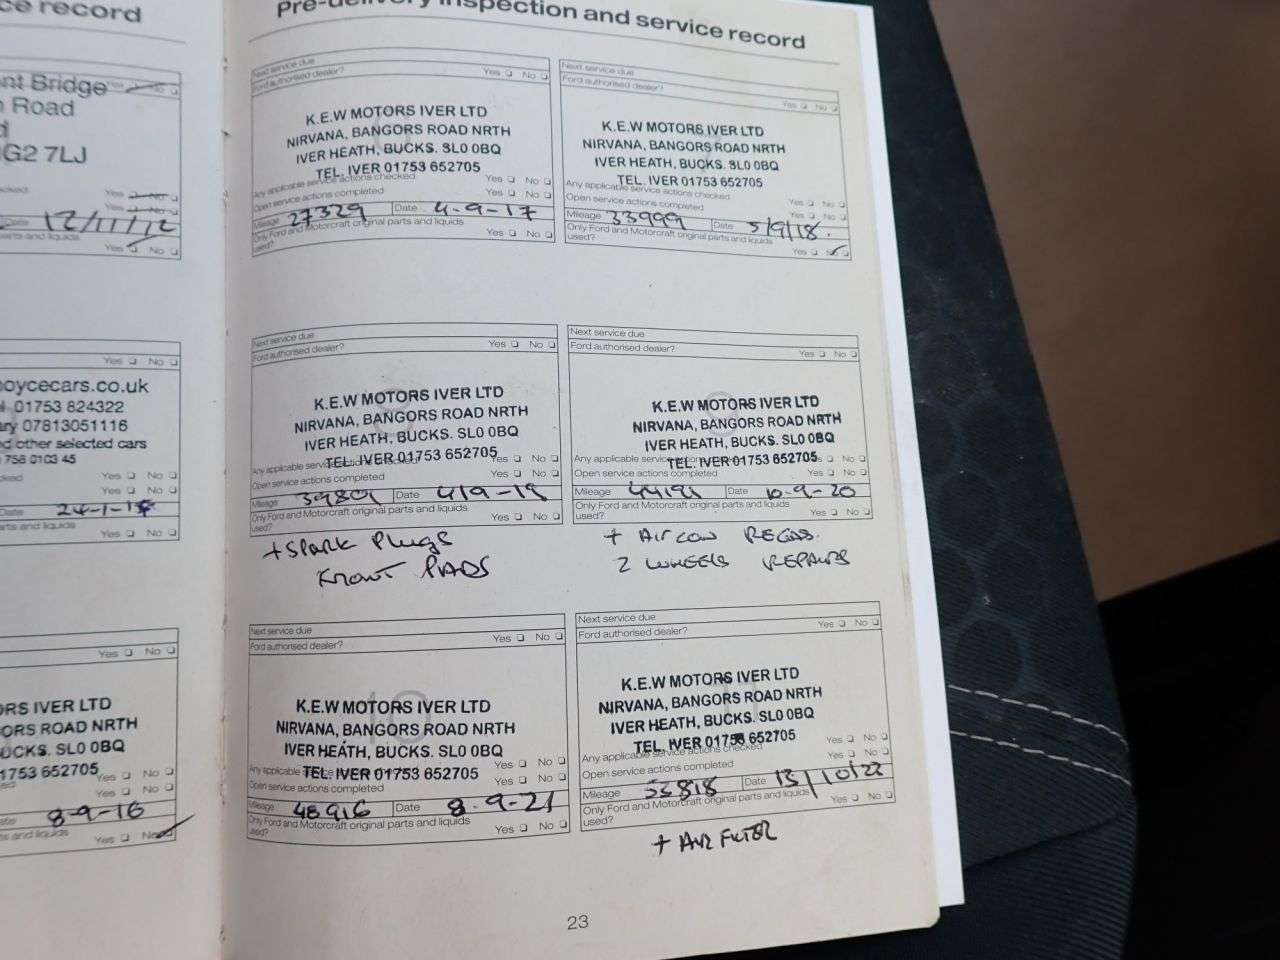 ce record
nt Bridge
Yes No
n Road
d
G2 7LJ
Yes No
Yes No
Date 12/11/12
parts and liquids
Yes No
Yes No
oycecars.co.uk
01753 824322
ary 07813051116
d other selected cars
758 0103 45
Yes No
Yes No
Date 24-1-15
parts and liquids
Yes No
Yes No
ORS IVER LTD
ORS ROAD NRTH
UCKS. SL0 0BQ
1753 652705
Yes No
Yes No
8-9-16
ts and liquids
Yes No
Pre-delivery inspection and service record
Next service due
Ford authorised dealer? Yes No
K.E.W MOTORS IVER LTD
NIRVANA, BANGORS ROAD NRTH
IVER HEATH, BUCKS. SL0 0BQ
TEL. IVER 01753 652705
Any applicable service actions checked Yes No
Open service actions completed Yes No
Mileage 27329 Date 4-9-17
Only Ford and Motorcraft original parts and liquids
used? Yes No
Next service due
Ford authorised dealer? Yes No
K.E.W MOTORS IVER LTD
NIRVANA, BANGORS ROAD NRTH
IVER HEATH, BUCKS. SL0 0BQ
TEL. IVER 01753 652705
Any applicable service actions checked Yes No
Open service actions completed Yes No
Mileage 33999 Date 5/9/18.
Only Ford and Motorcraft original parts and liquids
used? Yes No
Next service due
Ford authorised dealer? Yes No
K.E.W MOTORS IVER LTD
NIRVANA, BANGORS ROAD NRTH
IVER HEATH, BUCKS. SL0 0BQ
TEL. IVER 01753 652705
Any applicable service actions checked Yes No
Open service actions completed Yes No
Mileage 39801 Date 4/9-19
Only Ford and Motorcraft original parts and liquids
used? Yes No
+ SPARK Plugs
FRONT PADS
Next service due
Ford authorised dealer? Yes No
9
K.E.W MOTORS IVER LTD
NIRVANA, BANGORS ROAD NRTH
IVER HEATH, BUCKS. SL0 0BQ
TEL. IVER 01753 652705
Any applicable service actions checked Yes No
Open service actions completed Yes No
Mileage 44191 Date 10-9-20
Only Ford and Motorcraft original parts and liquids
used? Yes No
+ AIRCON REGAS.
2 WHEELS REPAIRS
Next service due
Ford authorised dealer? Yes No
10
K.E.W MOTORS IVER LTD
NIRVANA, BANGORS ROAD NRTH
IVER HEATH, BUCKS. SL0 0BQ
TEL. IVER 01753 652705
Any applicable Yes No
Open service actions completed Yes No
Mileage 48916 Date 8-9-21
Only Ford and Motorcraft original parts and liquids
used? Yes No
Next service due
Ford authorised dealer? Yes No
K.E.W MOTORS IVER LTD
NIRVANA, BANGORS ROAD NRTH
IVER HEATH, BUCKS. SL0 0BQ
TEL. IVER 01753 652705
Any applicable service actions checked Yes No
Open service actions completed Yes No
Mileage 53818 Date 13/10/22
Only Ford and Motorcraft original parts and liquids
used? Yes No
+ AIR FILTER
23